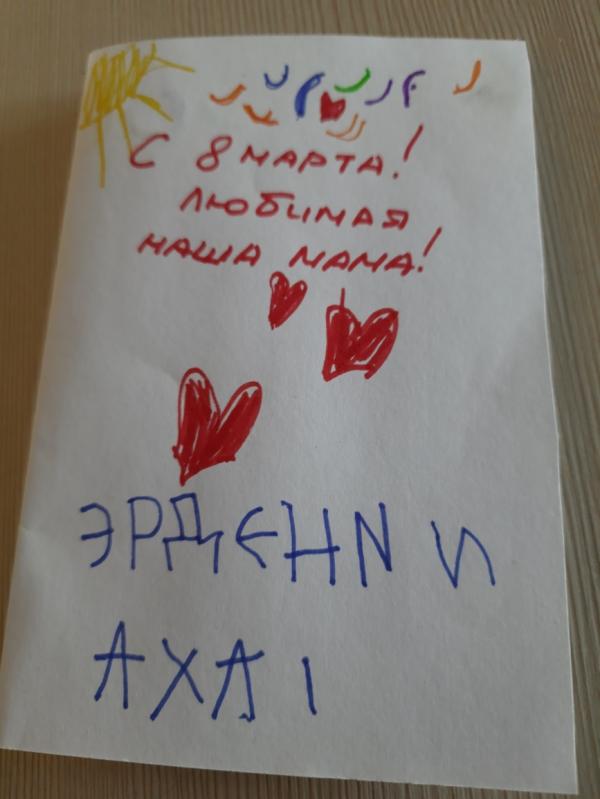 С 8 МАРТА!
ЛЮБИМАЯ
НАША МАМА!
ЭРДЕНИ И
АХА I